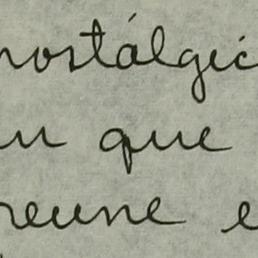 nostálgic
u que
reune e